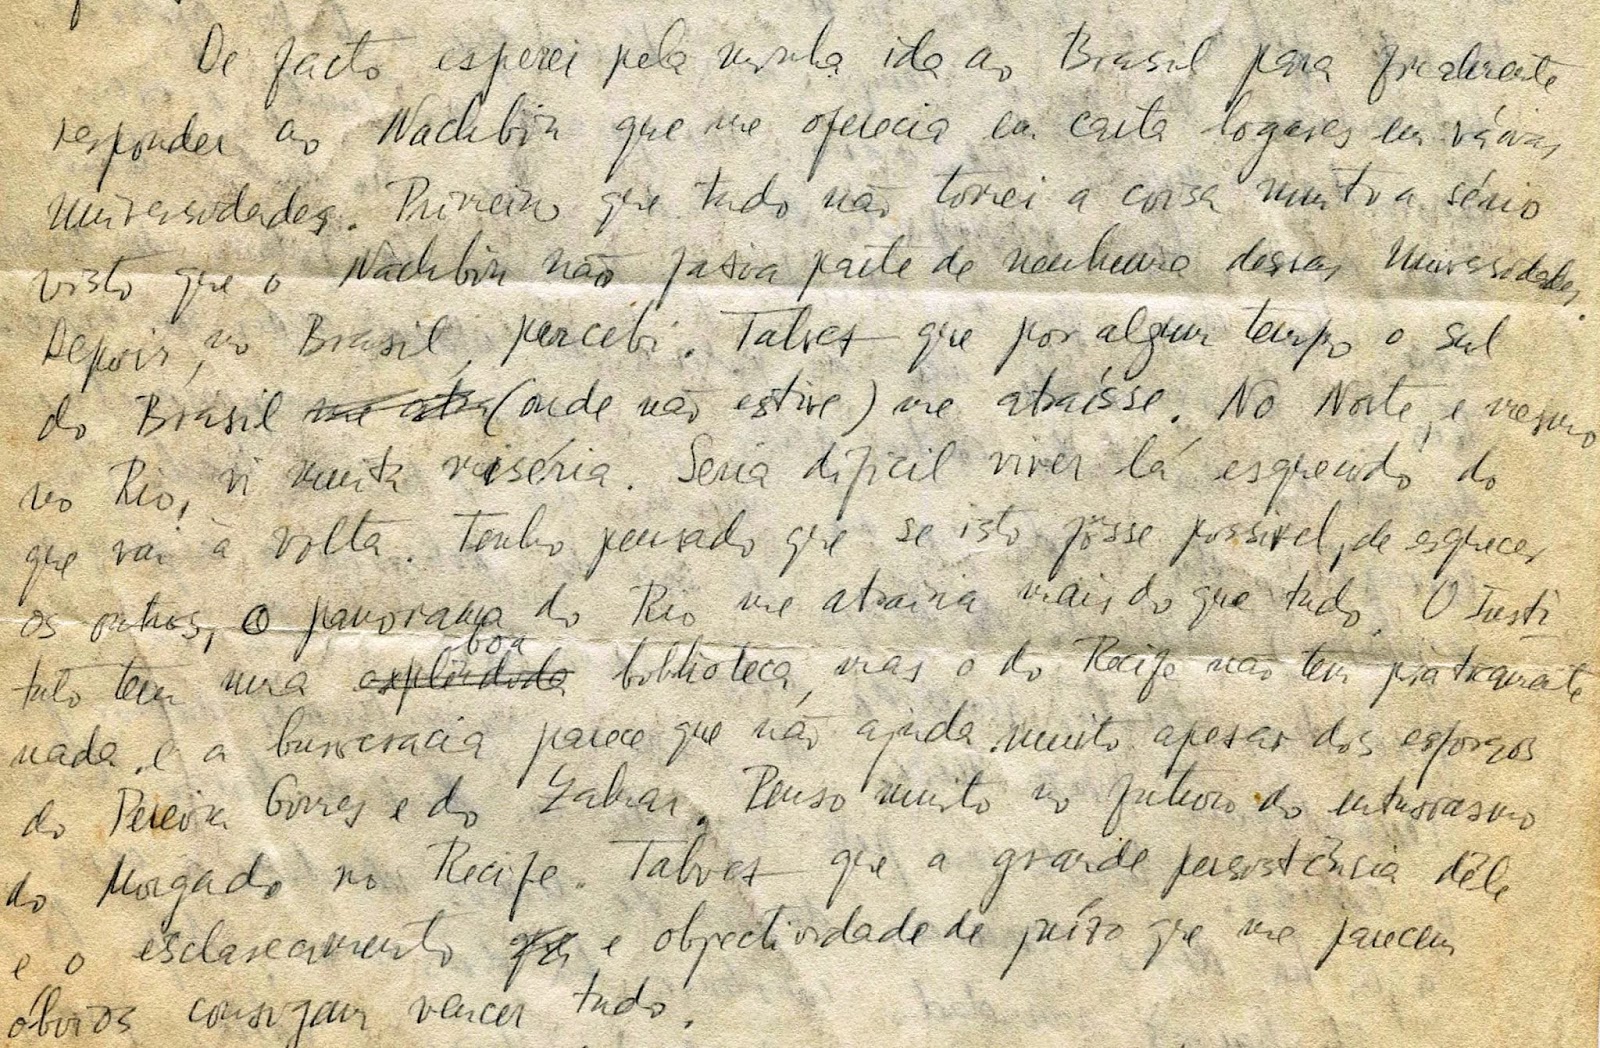 De facto esperei pela minha ida ao Brasil para finalmente
responder ao Nachbin que me oferecia em carta logares em várias
Universidades. Primeiro que tudo não tomei a coisa muito a sério
visto que o Nachbin não fazia parte de nenhuma dessas Universidades.
Depois, no Brasil, percebi. Talvez que por algum tempo o sul
do Brasil (onde não estive) me atraísse. No Norte, e mesmo
no Rio, vi muita miséria. Seria difícil viver lá esquecido do
que vai à volta. Tenho pensado que se isto fôsse possível, de esquecer
os outros, o panorama do Rio me atrairia mais do que tudo. O Insti
tuto tem uma boa biblioteca, mas o do Recife não tem praticamente
nada e a burocracia parece que não ajuda muito apesar dos esforços
do Pereira Gomes e do Zaluar. Penso muito no futuro do entusiasmo
do Morgado no Recife. Talvez que a grande persistência dêle
e o esclarecimento e objectividade de juízo que me parecem
óbvios consigam vencer tudo.